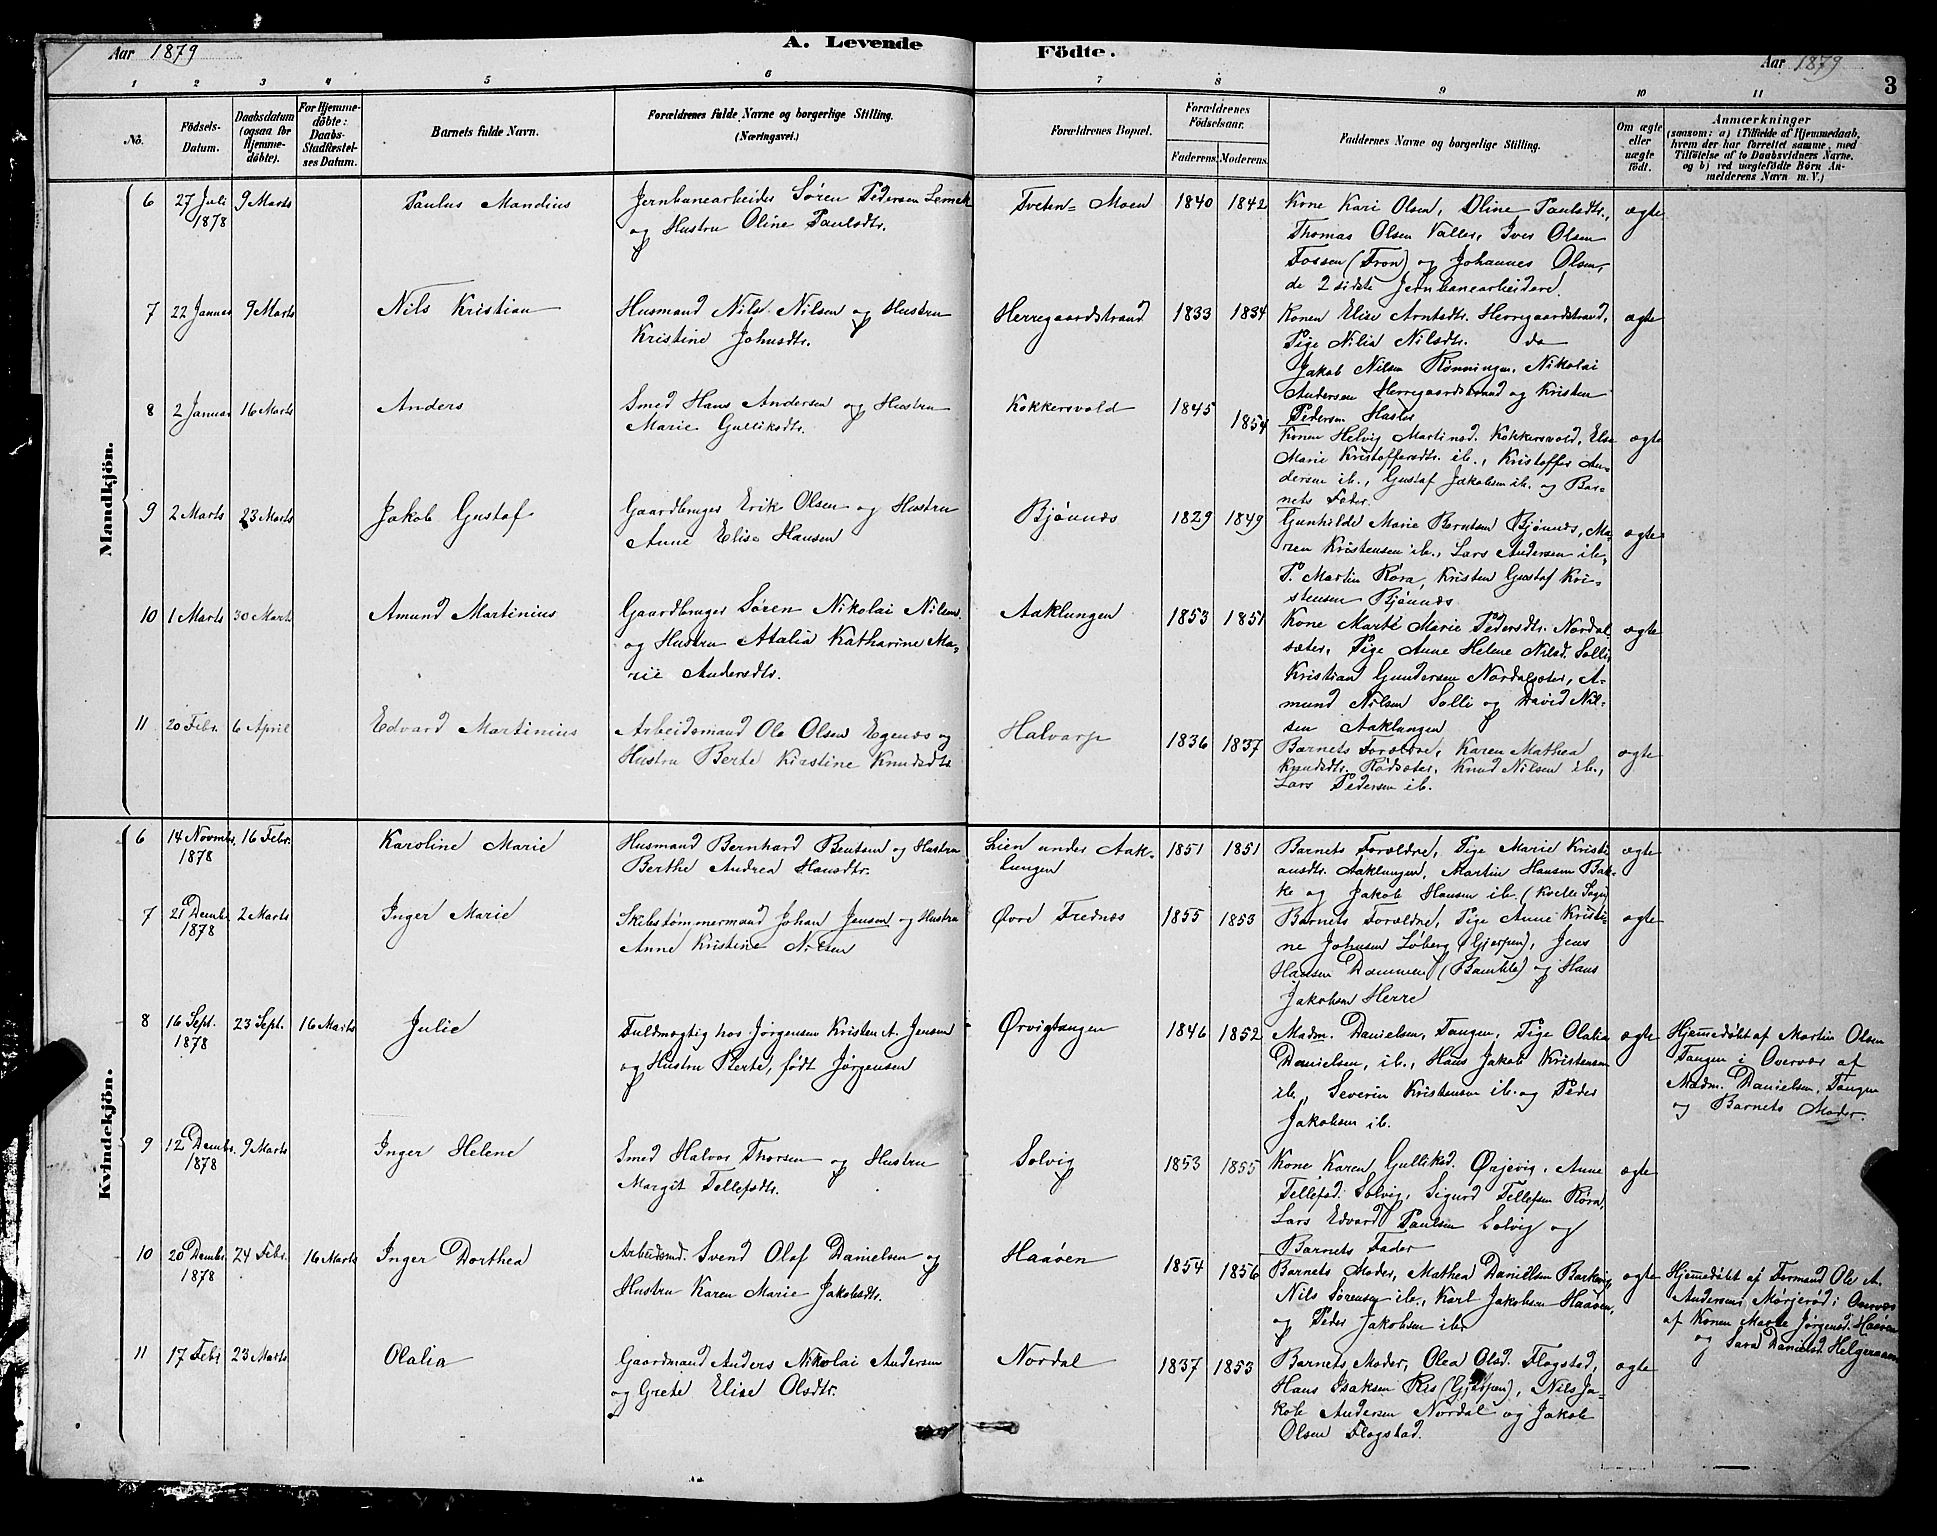 Aar 1879 A. Levende Födte. Aar 1879 3
1 2 3 4 5 6 7 8 9 10 11
No.
Födsels-
Datum.
Daabsdatum
(ogsaa for
Hjemme-
döbte).
For Hjemme-
döbte:
Daabs-
Stadfæstel-
ses Datum.
Barnets fulde Navn.
Forældrenes fulde Navne og borgerlige Stilling.
(Næringsvei.)
Forældrenes Bopæl.
Forældrenes
Födselsaar.
Faderens. Moderens.
Faddernes Navne og borgerlige Stilling.
Om ægte
eller
uægte
födt.
Anmærkninger
(saasom: a) i Tilfælde af Hjemmedaab,
hvem der har forrettet samme, med
Tilföielse af to Daabsvidners Navne,
og b) ved uægtefödte Börn An-
melderens Navn m. V.)
Mandkjön.
6 27 Juli 1878 9 Marts Paulus Mandius
Jernbanearbeider Søren Pedersen
og Hustru Oline Paulsdtr.
Tveten-Moen 1840 1842
Kone Kari Olsen, Oline Paulsdtr.,
Thomas Olsen Valler, Iver Olsen
Fossen (Fron) og Johannes Olsen,
de 2 sidste Jernbanearbeidere.
ægte
7 22 Januar 9 Marts Nils Kristian
Husmand Nils Nilsen og Hustru
Kristine Johnsdtr.
Herregaardstrand 1833 1834
Konen Elise Arntsdtr. Herregaardstrand,
Pige Nilia Nilsdtr. do
Jakob Nilsen Rønningen, Nikolai
Andersen Herregaardstrand og Kristen
Pedersen Hasler
ægte
8 2 Januar 16 Marts Anders
Smed Hans Andersen og Hustru
Marie Gulliksdtr.
Kokkersvold 1845 1854
Konen Helvig Martinsd. Kokkersvold, Else
Marie Kristoffersdtr. ib., Kristoffer An-
dersen ib., Gustaf Jakobsen ib. og Bar-
nets Fader.
ægte
9 2 Marts 23 Marts Jakob Gustaf
Gaardbruger Erik Olsen og Hustru
Anne Elise Hansen
Bjønnes 1829 1849
Gunhilde Marie Berntsen Bjønnes, Ma-
ren Kristensen ib., Lars Andersen ib.,
P. Martin Røra, Kristen Gustaf Kri-
stensen Bjønnes
ægte
10 1 Marts 30 Marts Amund Martinius
Gaardbruger Søren Nikolai Nilsen
og Hustru Atalia Katharine Ma-
rie Andersdtr.
Aaklungen 1853 1851
Kone Marte Marie Pedersdtr. Nordal-
sæter, Pige Anne Helene Nilsd. Solli
Kristian Gundersen Nordalsæter, A-
mund Nilsen Solli og David Nil-
sen Aaklungen
ægte
11 20 Febr. 6 April Edvard Martinius
Arbeidsmand Ole Olsen Egenæs og
Hustru Berte Kirstine Knudsdtr.
Halvarp 1836 1837
Barnets Forældre, Karen Mathea
Knudsdtr. Rødsæter, Knud Nilsen ib.,
Lars Pedersen ib.
ægte
Kvindekjön.
6 14 Novmbr. 1878 16 Febr. Karoline Marie
Husmand Bernhard Bentsen og Hustru
Berthe Andrea Hansdtr.
Lien under Aak-
lungen
1851 1851
Barnets Forældre, Pige Marie Kristi-
ansdtr. Aaklungen, Martin Hansen Bak-
ke og Jakob Hansen ib. (Kvelle Sogn)
ægte
7 21 Dembr. 1878 2 Marts Inger Marie
Skibstømmermand Johan Jensen og Hustru
Anne Kristine Nilsen
Øvre Frednæs 1855 1853
Barnets Forældre, Pige Anne Kristi-
ne Johnsen Løberg (Gjerpen), Jens
Hansen Dammen (Bamble) og Hans
Jakobsen Herre
ægte
8 16 Sept. 1878 23 Sept. 16 Marts Julie
Fuldmægtig hos Jørgensen Kristen A. Jensen
og Hustru Berte, født Jørgensen
Ørvigtangen 1846 1852
Madm. Danielsen, Tangen, Pige Olalia
Danielsen, ib., Hans Jakob Kristensen
ib., Severin Kristensen ib. og Peder
Jakobsen ib.
ægte
Hjemmedøbt af Martin Olsen
Tangen i Overvær af
Madm. Danielsen, Tangen
og Barnets Moder.
9 12 Dembr. 1878 9 Marts Inger Helene
Smed Halvor Thorsen og Hustru
Margit Tellefsdtr.
Solvig 1853 1855
Kone Karen Gulliksd. Ørjevig, Anne
Tellefsd. Solvig, Sigurd Tellefsen Røra,
Lars Edvard Paulsen Solvig og
Barnets Fader
ægte
10 20 Dembr. 1878 24 Febr. 16 Marts Inger Dorthea
Arbeidsmd. Svend Olaf Danielsen og
Hustru Karen Marie Jakobsdtr.
Haaøen 1854 1856
Barnets Moder, Mathea Danielsen Barkevig,
Nils Sørensen ib., Karl Jakobsen Haaøen,
og Peder Jakobsen ib.
ægte
Hjemmedøbt af Formand Ole A.
Andersen, Mørjerød i Overvær
af Konen Marte Jørgensd. Haaøen
og Sara Danielsd. Helgeraaen
11 17 Febr. 23 Marts Olalia
Gaardmand Anders Nikolai Andersen
og Grete Elise Olsdtr.
Nordal 1837 1853
Barnets Moder, Olea Olsd. Flogstad,
Hans Isaksen Ris (Gjerpen), Nils Ja-
kob Andersen Nordal og Jakob
Olsen Flogstad.
ægte